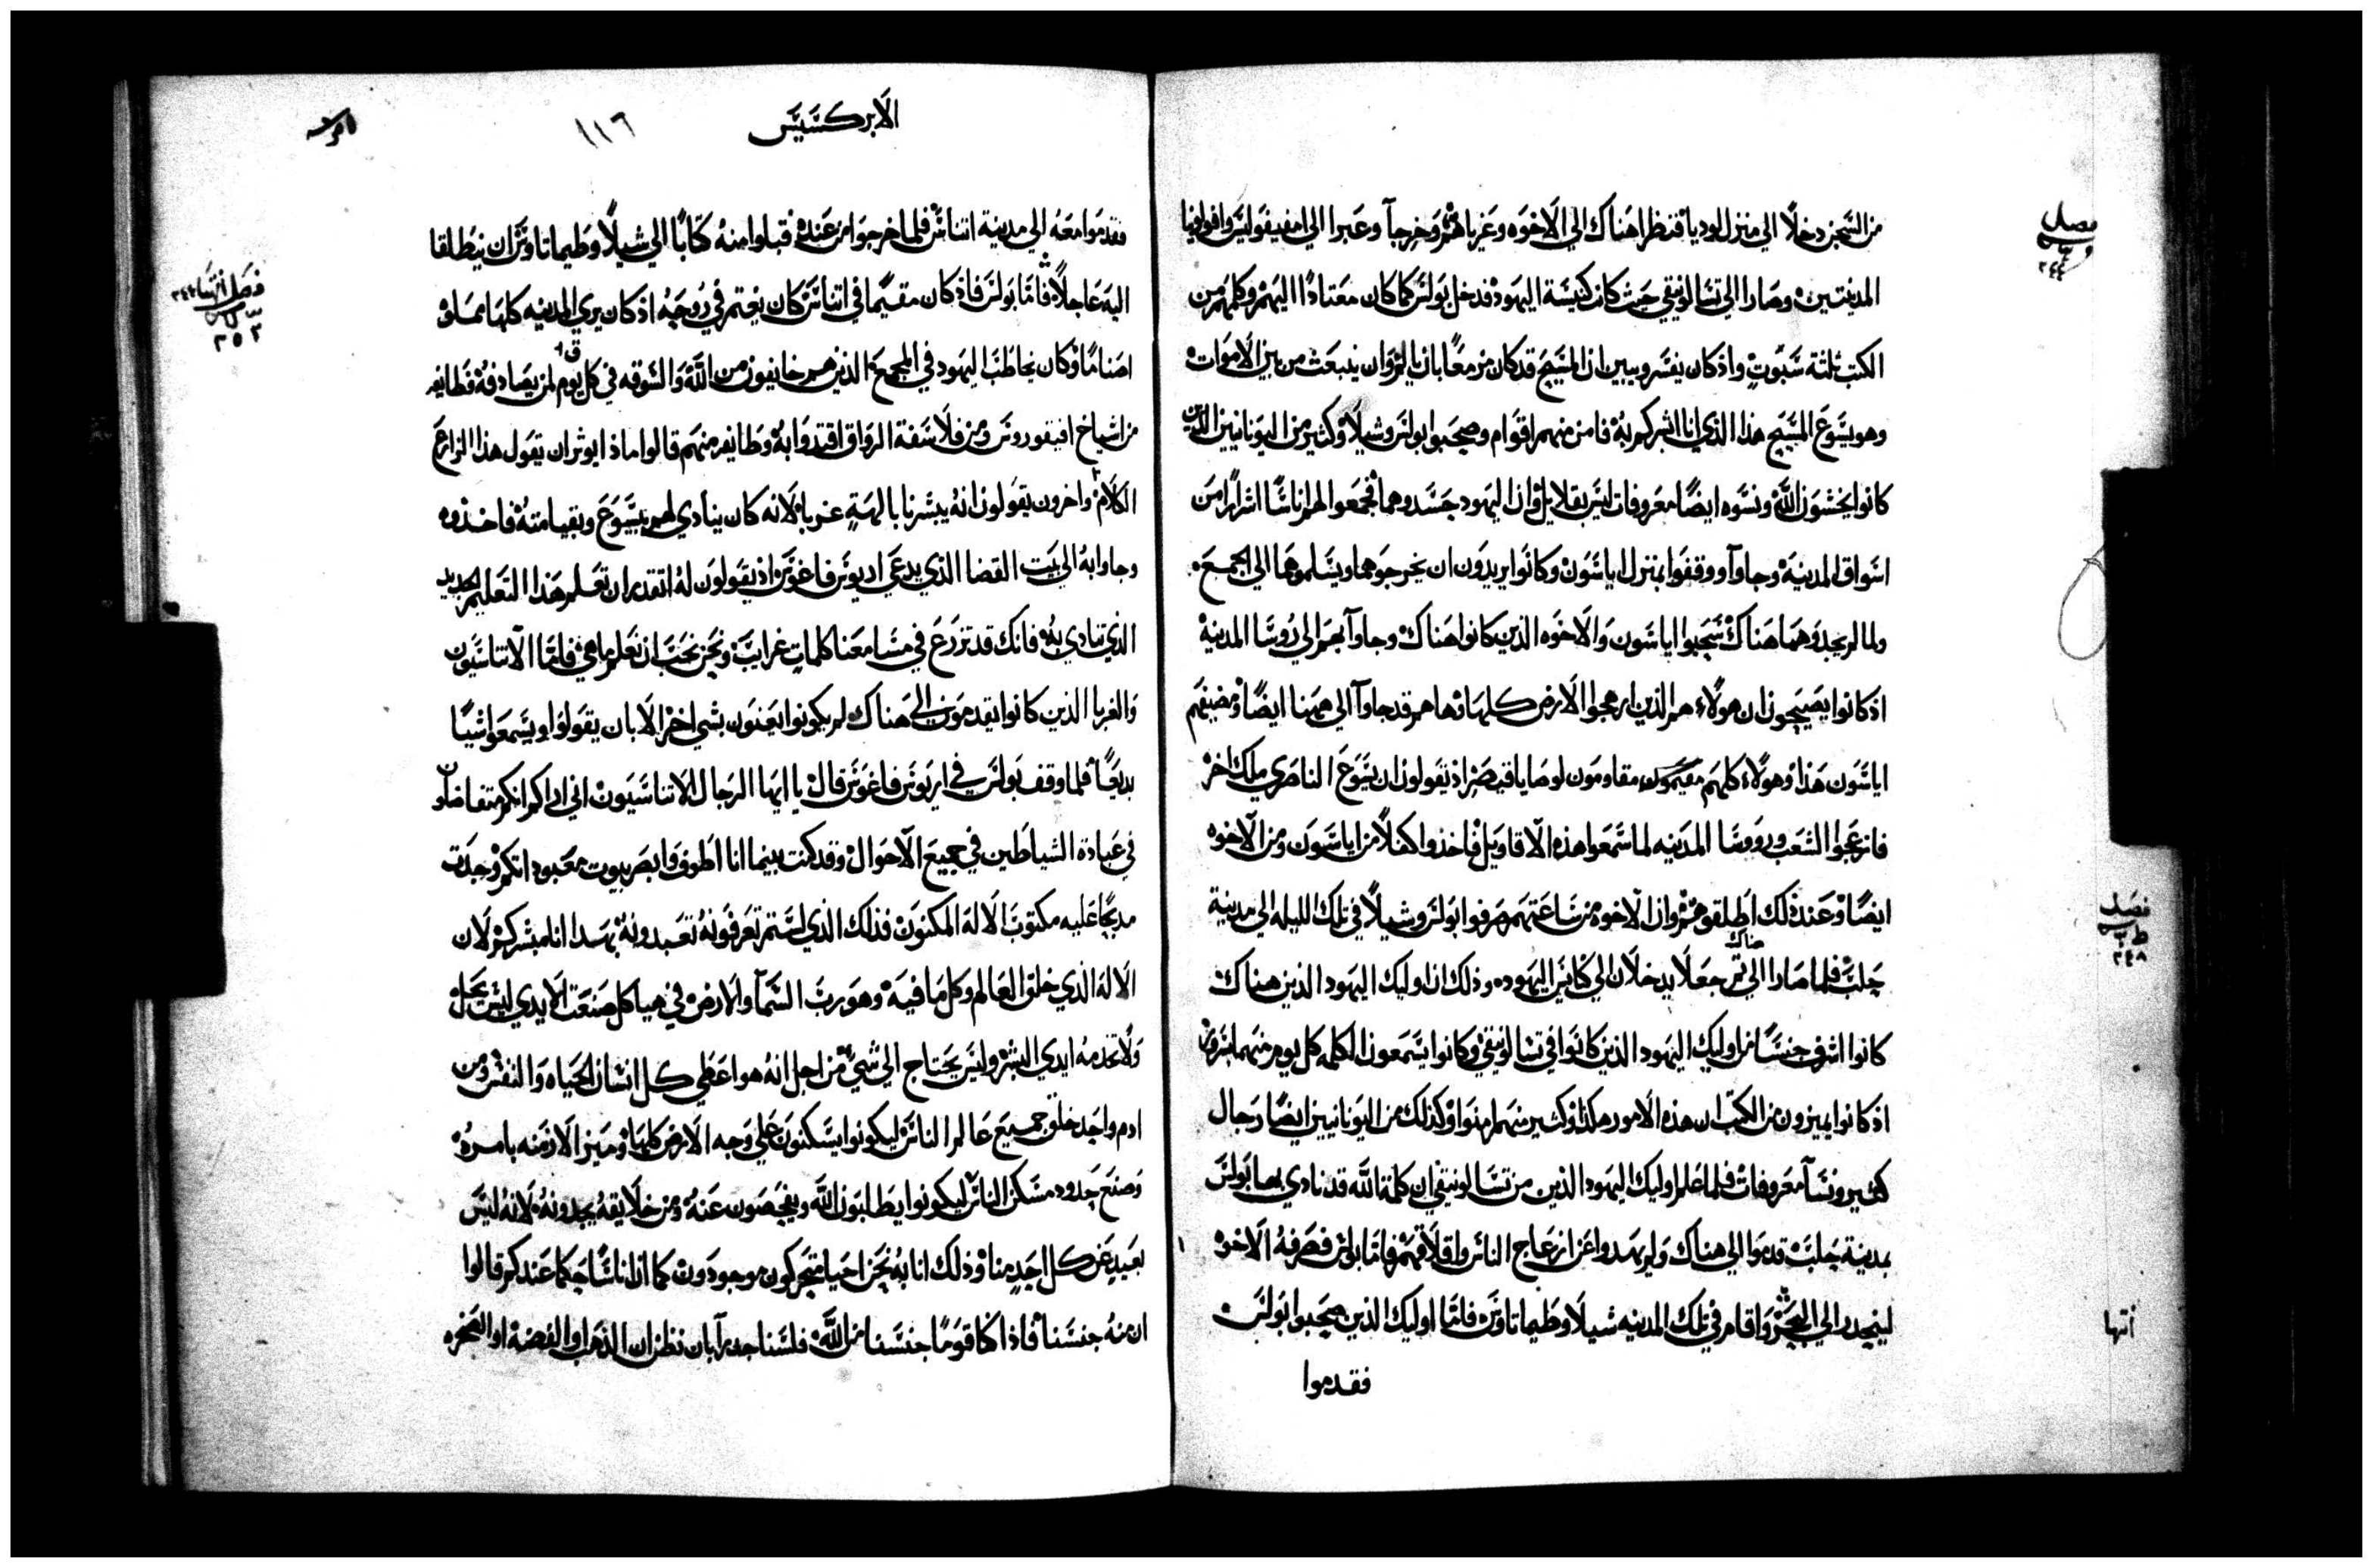 من السجن دخلا الي منزل لوديا فنظرا هناك الي الاخوه وعزياهم وخرجا وعبرا الي امفيفوليس وافولونيا
المدينتين وصارا الي تسالونيقي حيث كانت كنيسة اليهود فدخل بولس كما كان معتادا اليهم وكلمهم من
الكتب ثلثة سبوت واذ كان يفسر ويبين ان المسيح قد كان مزمعا بان يالم وان ينبعث من بين الاموات
وهو يسوع المسيح هذا الذي انا ابشركم به فامن منهم اقوام وصحبوا بولس وشيلا وكثير من اليونانيين الذين
كانوا يخشون الله ونسوه ايضا معروفات ليس بقلايل وان اليهود حسدوهما فجمعوا لهم اناسا اشرارا من
اسواق المدينة وجاوا ووقفوا بمنزل اياسون وكانوا يريدون ان يخرجوهما ويسلموهما الي الجمع
ولما لم يجدوهما هناك سحبوا اياسون والاخوه الذين كانوا هناك وجاوا بهم الي روسا المدينة
اذ كانوا يصيحون ان هولاء هم الذين ارهجوا الارض كلها وهاهم قد جاوا الي ههنا ايضا ومضيفهم
اياسون هذا وهولاء كلهم مقيمون مقاومون لوصايا قيصر اذ يقولون ان يسوع الناصري ملك اخر
فانزعجوا الشعب وروسا المدينه لما سمعوا هذه الاقاويل فاخذوا كفلا من اياسون ومن الاخوه
ايضا وعند ذلك اطلقوهم وان الاخوه من ساعتهم صرفوا بولس وشيلا في تلك الليله الي مدينة
حلب فلما صارا الي ثم هناك جعلا يدخلان الي كنايس اليهود وذلك ان اوليك اليهود الذين هناك
كانوا اشرف جنسا من اوليك اليهود الذين كانوا في تسالونيقي وكانوا يسمعون الكلمه كل يوم منهما بسرور
اذ كانوا يميزون من الكتب ان هذه الامور هكذا وكثير منهم امنوا وكذلك من اليونانيين ايضا رجال
كثير ونسا معروفات فلما علم اوليك اليهود الذين من تسالونيقي ان كلمة الله قد نادي بها بولس
بمدينة حلب قدموا الي هناك ولم يهدوا عن ازعاج الناس واقلاقهم فاما بولس فصرفه الاخوه
لينحدر الي البحر واقام في تلك المدينه شيلا وطيماتاوس فاما اوليك الذين صحبوا بولس
فقدموا
فصل
و
٢٤٤
فصل
ط
٢٤٨
انتها
الابركسيس
١١٦
فقدموا معه الي مدينة اتناس فلما خرجوا من عنده قبلوا منه كتابا الي شيلا وطيماتاوس ان ينطلقا
اليه عاجلا فاما بولس فاذ كان مقيما في اتناس كان يغتم في روحه اذ كان يري المدينه كلها مملوه
اصناما وكان يخاطب اليهود في المجمع الذين هم خايفون من الله والسوقه في كل يوم لمن يصادفه فطايفه
من اشياخ افيقوروس ومن فلاسفة الرواق اقتدوا به وطايفه منهم قالوا ماذا يوثر ان يقول هذا الزارع
الكلام واخرون يقولون انه يبشرنا بالهة غربا لانه كان ينادي لهم بيسوع وبقيامته فاخذوه
وجاوا به الي بيت القضا الذي يدعي اريوس فاغوس اذ يقولون له اتقدر ان تعلم هذا التعليم الجديد
الذي تنادي به فانك قد تزرع في مسامعنا كلمات غرايب ونحن نحب ان نعلم ما هي فاما الاتناسيون
والغربا الذين كانوا يقدمون الي هناك لم يكونوا يعنون بشي اخر الا بان يقولوا او يسمعوا شيا
بديعا فلما وقف بولس في اريوس فاغوس قال يا ايها الرجال الاتناسيون اني اراكم انكم متفاضلون
في عبادة الشياطين في جميع الاحوال وقد كنت بينما انا اطوف وابصر بيوت معبوداتكم وجدت
مدبحا عليه مكتوب الاله المكنون فذلك الذي لستم تعرفونه تعبدونه بهذا انا مبشركم لان
الاله الذي خلق العالم وكل ما فيه وهو رب السما والارض في هياكل صنعت الايدي ليس يحل
ولا تخدمه ايدي البشر وليس يحتاج الي شي من اجل انه هو اعطي كل انسان الحياه والنفس ومن
ادم واحد خلق جميع عالم الناس ليكونوا يسكنون علي وجه الارض كلها وميز الازمنه بامره
وصنع حدود مسكن الناس ليكونوا يطلبون الله ويفحصون عنه ومن خلايقه يجدونه لانه ليس
بعيد عن كل احد منا وذلك انا به نحن احيا متحركون موجودون كما ان اناسا حكما عندكم قالوا
ان منه جنسنا فاذا كنا قوما جنسنا من الله فلسنا جديرا بان نظن ان الذهب او الفضة او الصخره
فصل انتها ٢٤٤
٢٥٢